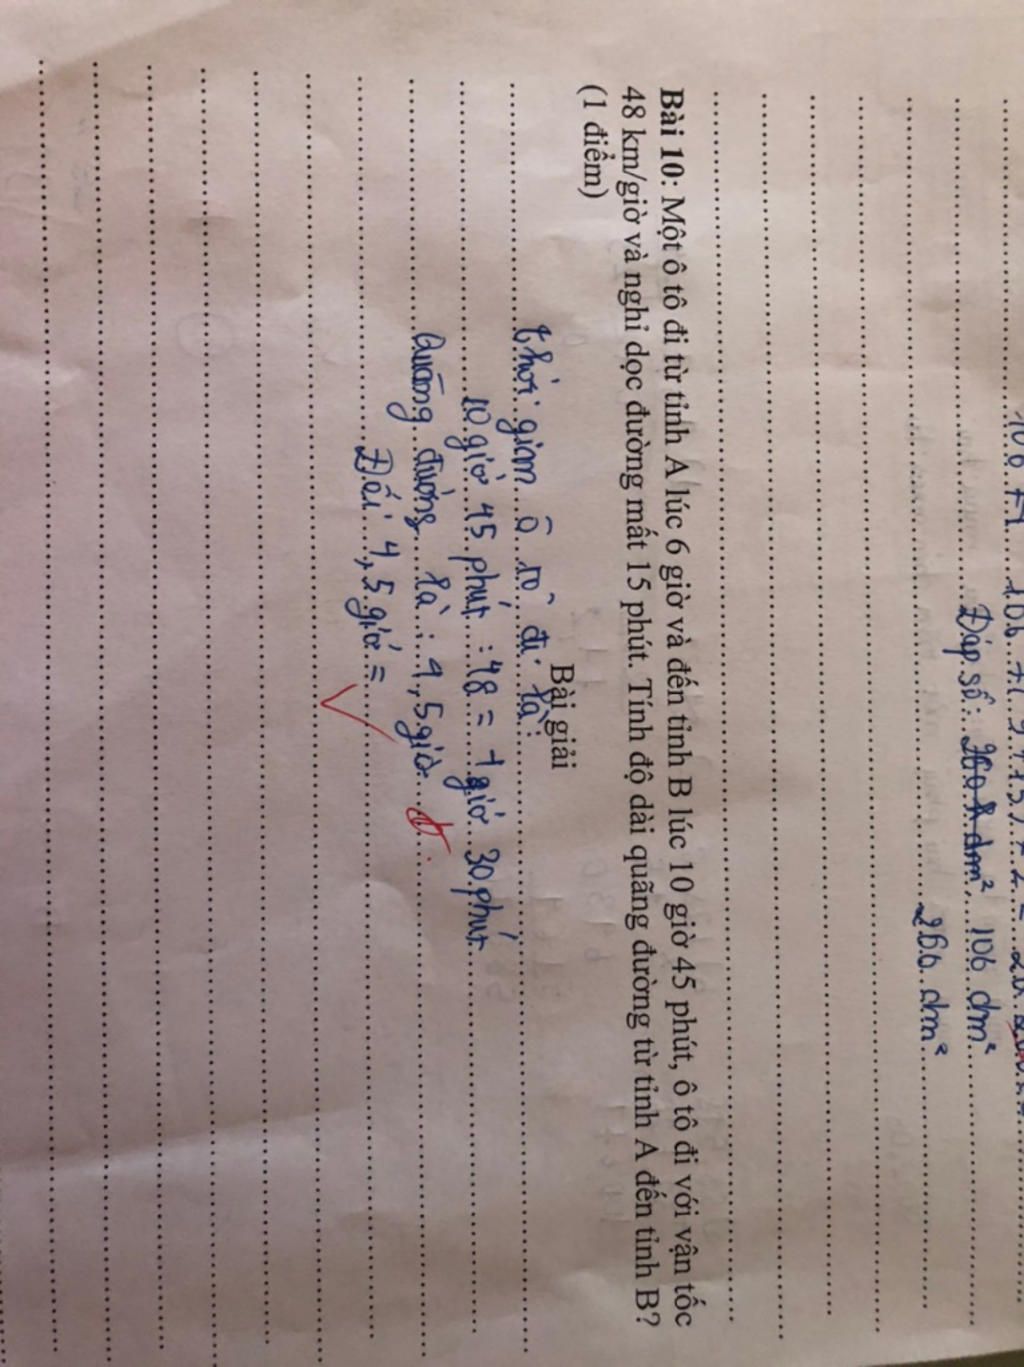 Đáp số: 106 dm²
260 dm²
Bài 10: Một ô tô đi từ tỉnh A lúc 6 giờ và đến tỉnh B lúc 10 giờ 45 phút, ô tô đi với vận tốc
48 km/giờ và nghỉ dọc đường mất 15 phút. Tính độ dài quãng đường từ tỉnh A đến tỉnh B?
(1 điểm)
Bài giải
thời gian ô tô đi là:
10 giờ 45 phút : 48 = 4 giờ 30 phút
Quãng đường là: 4,5 giờ
Đổi 4,5 giờ =